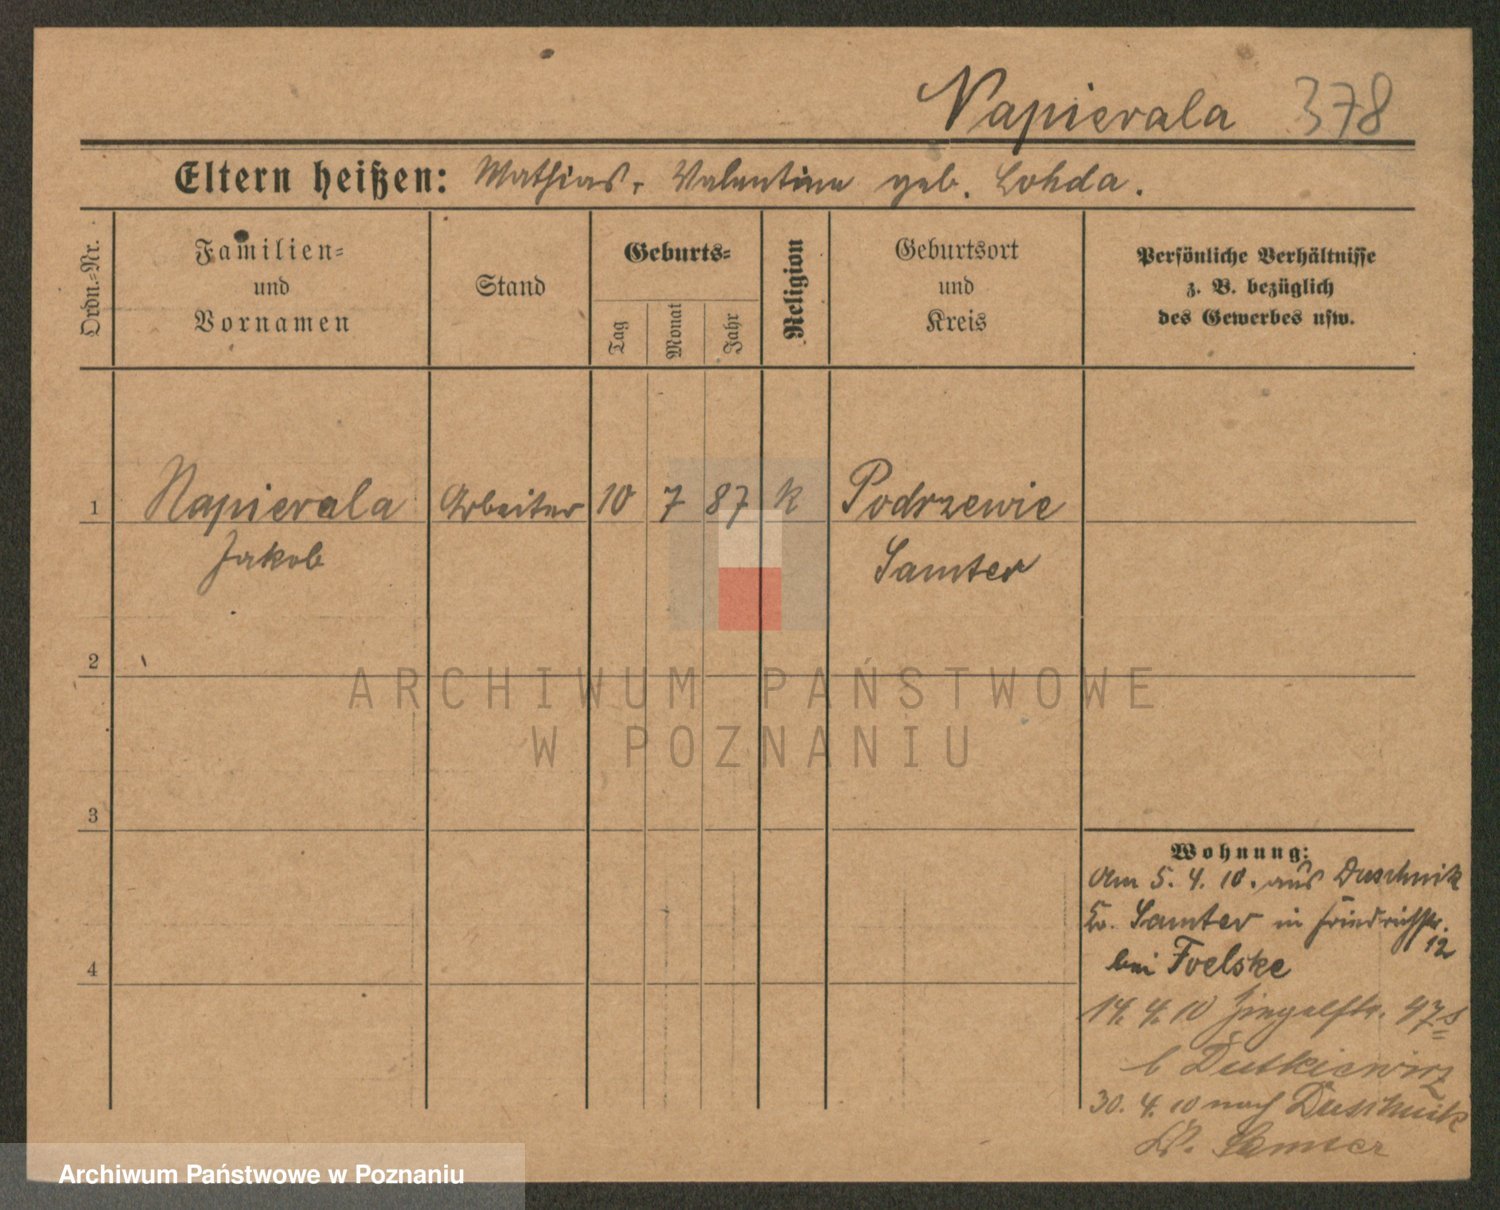 Napierala 378
Eltern heißen: Mathias, Valentine geb. Lohda.
Ordn.-Nr.
Familien-
und
Vornamen
Stand
Geburts-
Tag
Monat
Jahr
Religion
Geburtsort
und
Kreis
Persönliche Verhältnisse
z. B. bezüglich
des Gewerbes usw.
1 Napierala Arbeiter 10 7 87 k Podrzewie
Jakob Samter
2
3
4
Wohnung:
Am 5. 4. 10. aus Duschnik
Kr. Samter in Friedrichstr.
12
bei Foelske
14. 4. 10 Ziegelstr. 47
b Dutkiewicz
30. 4. 10 nach Duschnik
Kr. Samter
ARCHIWUM PAŃSTWOWE
W POZNANIU
Archiwum Państwowe w Poznaniu